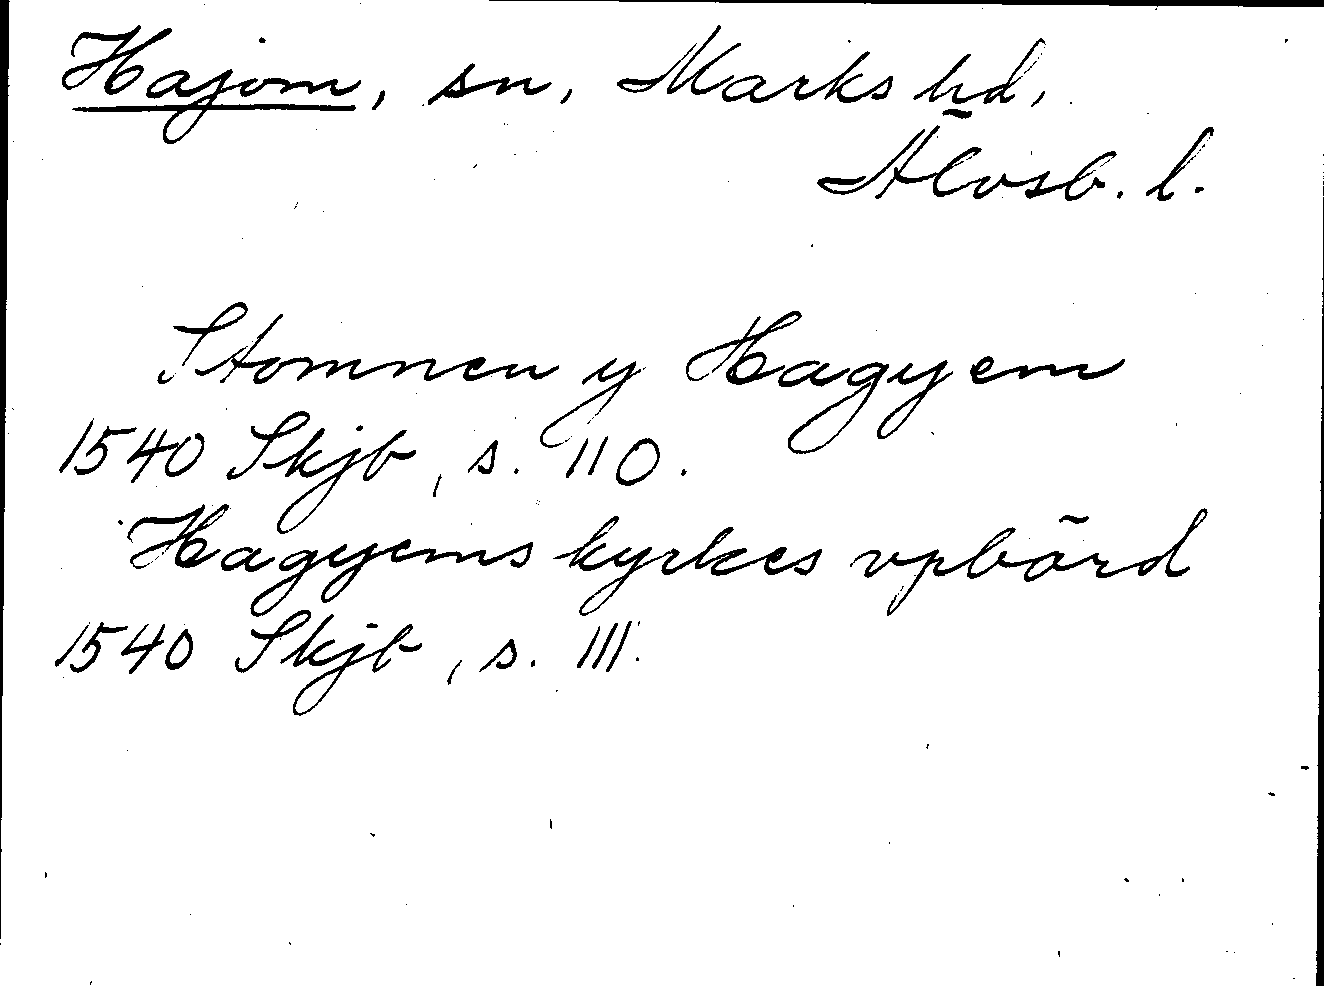 Hajom, sn, Marks hd,
Älvsb. l.
Stomnen y Hagyem
1540 Skjb, s. 110.
Hagyems kyrkes vpbörd
1540 Skjb, s. 111.